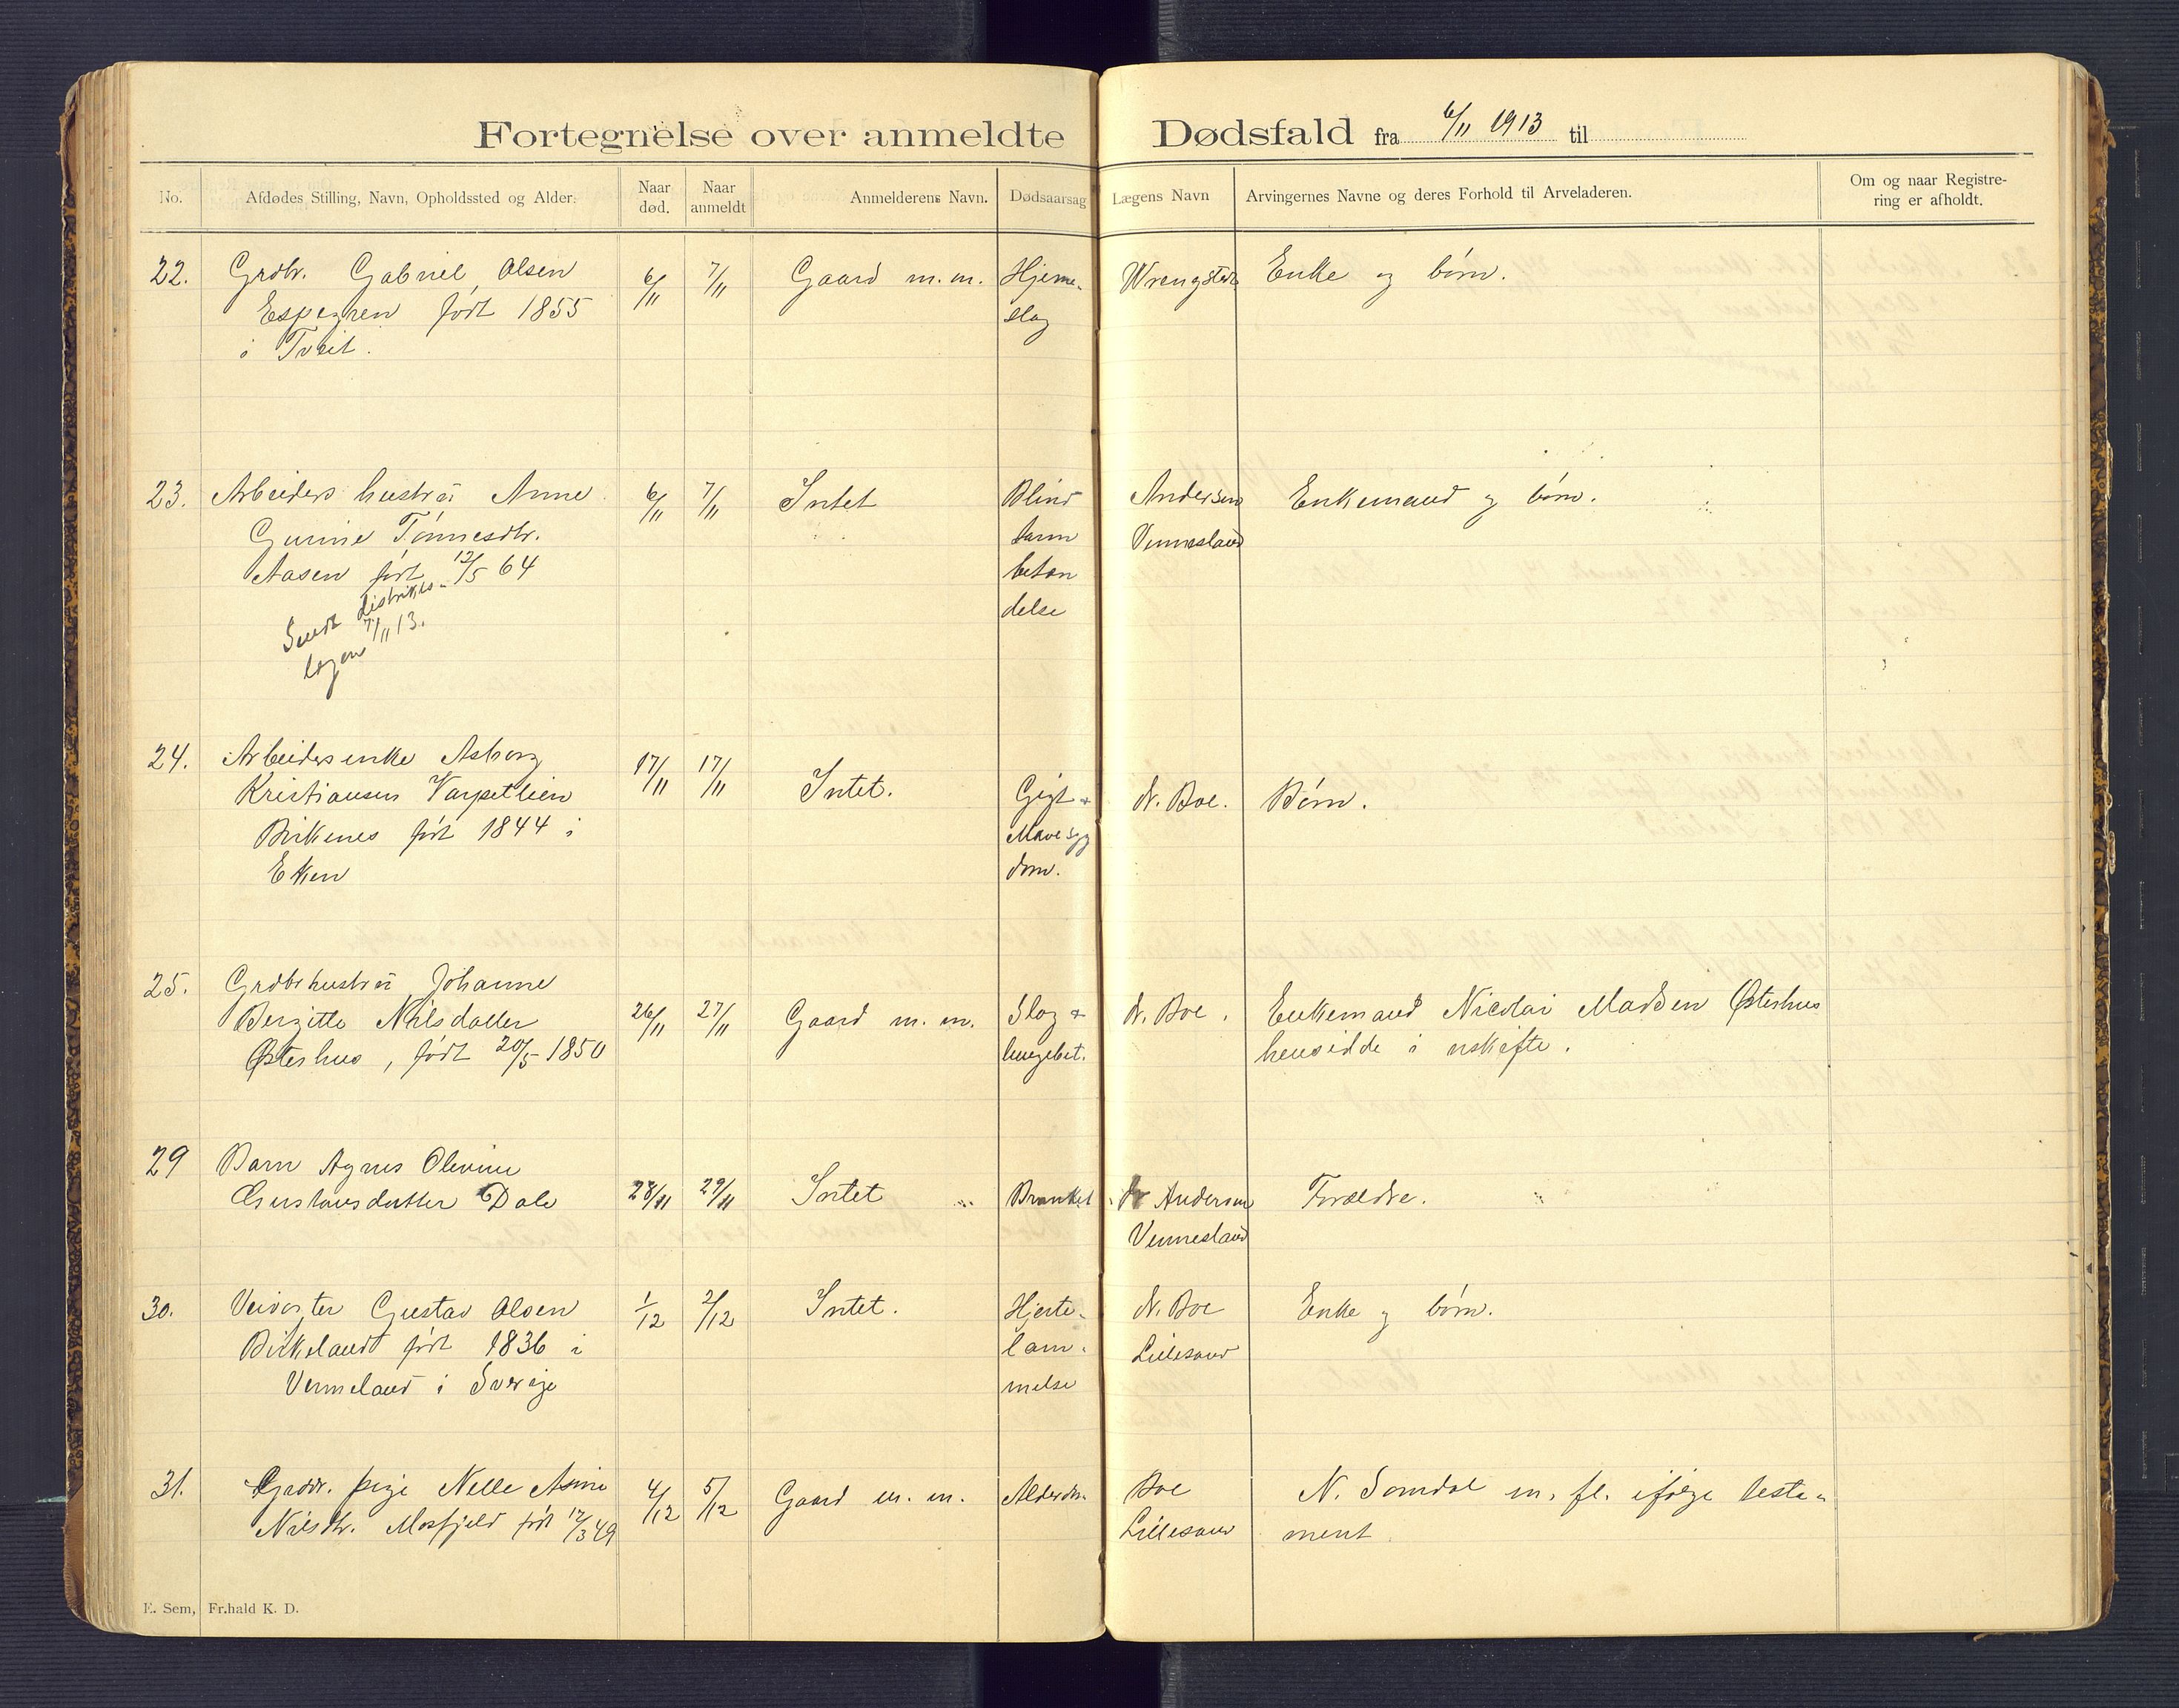 Fortegnelse over anmeldte Dødsfald fra 6/11 1913 til
No. Afdødes Stilling, Navn, Opholdssted og Alder. Naar død. Naar anmeldt Anmelderens Navn. Dødsaarsag Lægens Navn Arvingernes Navne og deres Forhold til Arveladeren. Om og naar Registrering er afholdt.
22. Grdbr. Gabriel Olsen 6/11 7/11 Gaard m.m. Hjerne- Wrengsted Enke og børn.
Espegren født 1855 slag
i Tveit.
23. Arbeiders hustrü Anne 6/11 7/11 Intet Blind Andersen Enkemand og børn.
Gurine Tønnesdtr. tarm Vennesland
Aasen født 12/5 64 betæn
delse
Sendt distrikts-
lægen 7/11 13.
24. Arbeidersenke Asborg 17/11 17/11
Kristiansen Varpetlien Intet. Gigt + dr. Boe. Børn.
Birkenes født 1844 i Mavesyg
Etken dom.
25. Grdbrhustrü Johanne
Bergitte Nilsdatter 26/11 27/11 Gaard m. m. Slag + dr. Boe. Enkemand Nicolai Madsen Østerhus
Østerhus, født 20/5 1850 lungebet. hensidde i uskifte.
29 Barn Agnes Olevine
Gustavsdatter Dale 28/11 29/11 Intet Bronkit dr Andersen Forældre.
Vennesland
30. Veivogter Gustav Olsen 1/12 2/12 Intet. Hjerte- dr. Boe Enke og børn.
Birkeland født 1836 i lam- Lillesand
Vermeland i Sverige melse
31. Grdbr. pige Nelle Asine 4/12 5/12 Gaard m. m. Alderdom Boe N. Somdal m. fl. ifølge testa-
Nilsdtr. Mosfjeld født 12/3 49 Lillesand ment
E. Sem, Fr.hald K. D.